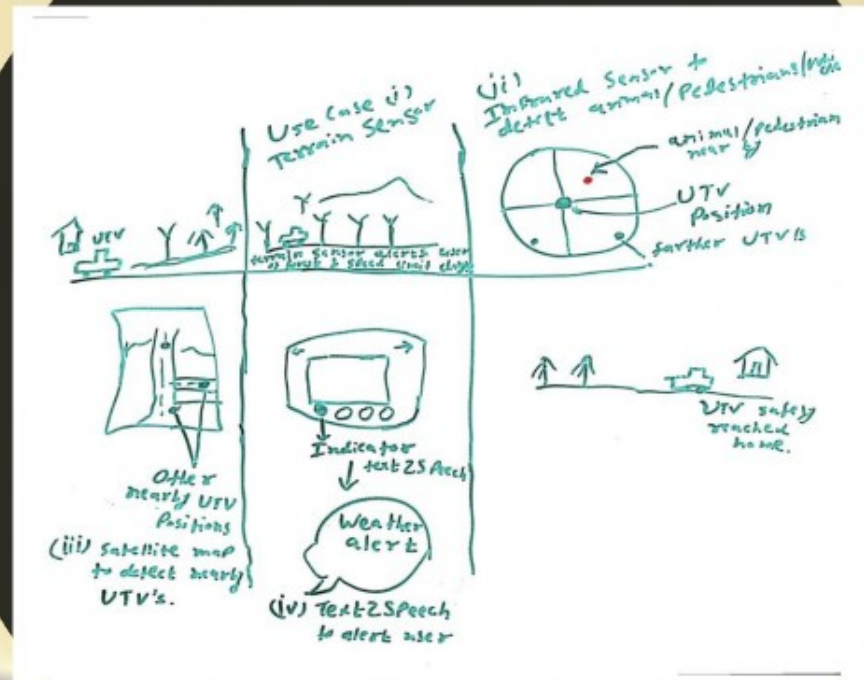 UTV
Use Case i)
Terrain Sensor
terrain sensor alerts user
& speed limit
(ii)
Infrared Sensor to
detect animal/Pedestrians/
animal/Pedestrian
near by
UTV
Position
farther UTV's
Other
nearby UTV
Positions
(iii) Satellite map
to detect nearby
UTV's.
Indicator
text2Speech
Weather
alert
(iv) Text2Speech
to alert user
UTV safely
reached
home.